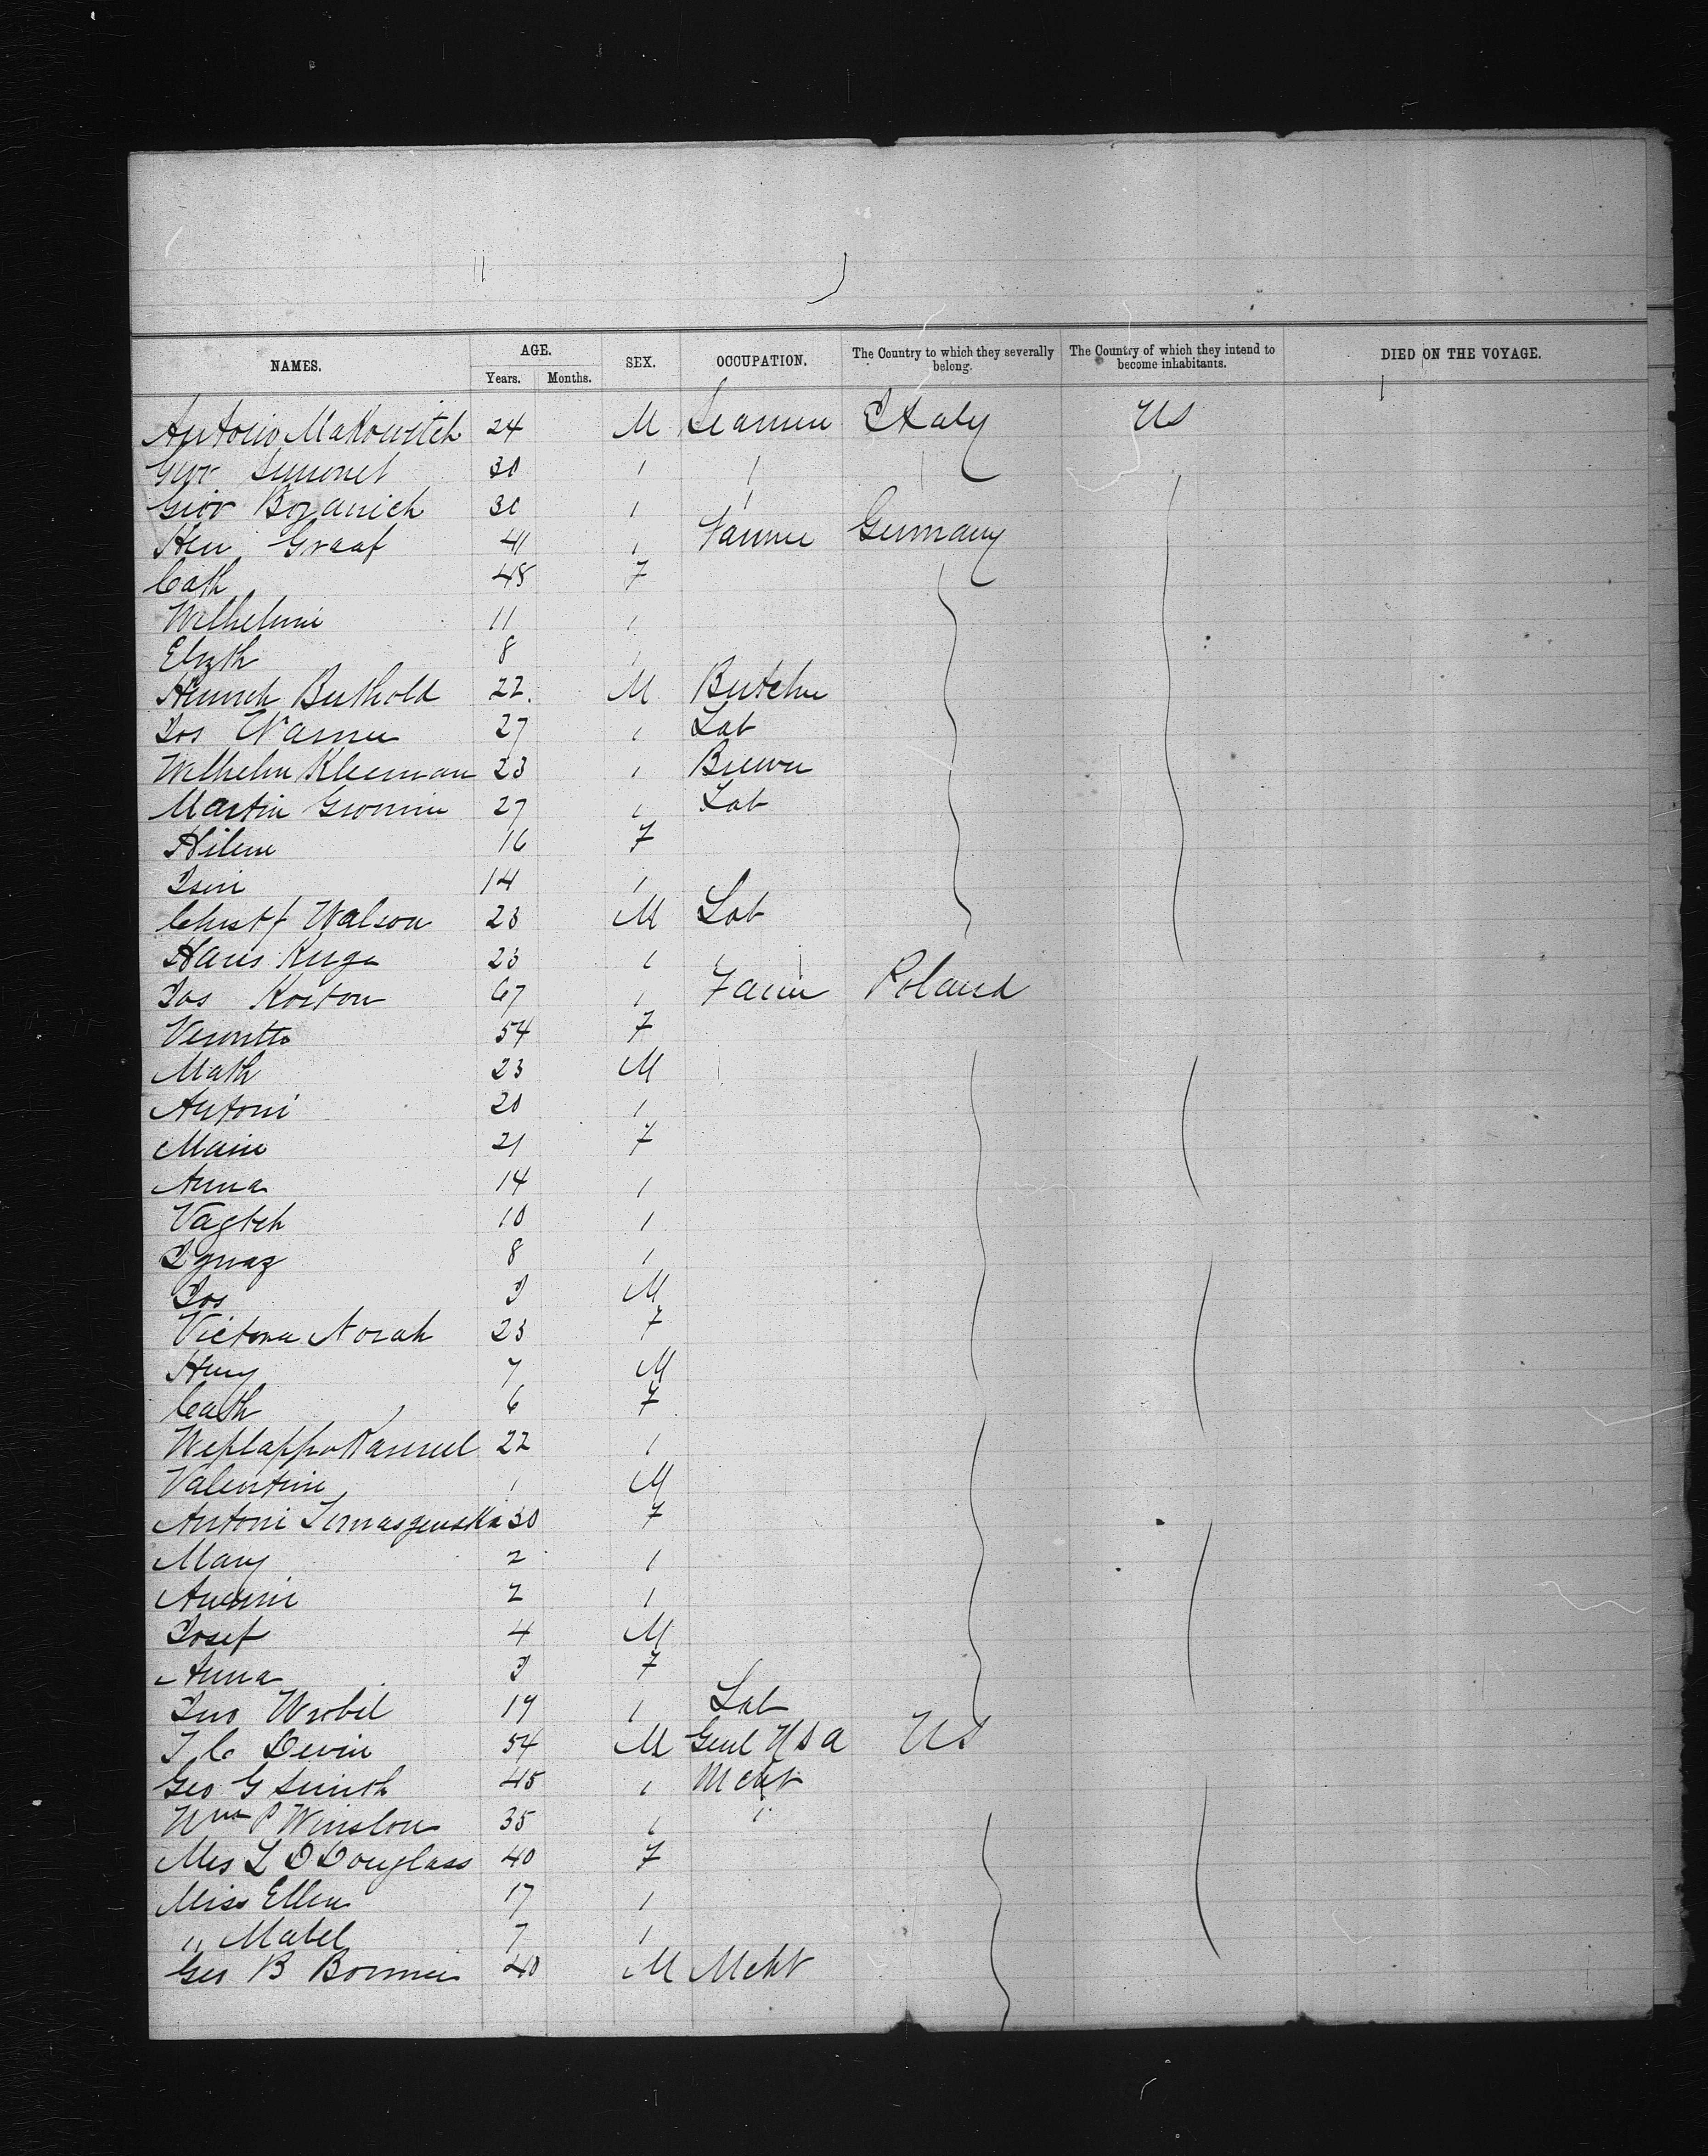 NAMES. AGE. Years. Months. SEX. OCCUPATION. The Country to which they severally belong. The Country of which they intend to become inhabitants. DIED ON THE VOYAGE.
Antonio Makowitch 24 M Seamen Italy US
Giov Simonet 30 " "
Giov Bozanich 30 " "
Hen Graaf 41 " Farmer Germany
Cath 48 F
Wilhelmi 11 "
Elizth 8 "
Heinrich Berthold 22 M Butcher
Jos Warner 27 " Lab
Wilhelm Kleeman 23 " Brewer
Martin 27 " Lab
Hilene 16 F
14 "
Christf Walson 23 M Lab
Hans Kruge 23 " "
Jos Koston 67 " Farm Poland
54 F
Math 23 M
Antoni 20 "
Marie 21 F
Anna 14 "
10 "
Ignaz 8 "
Jos 3 M
Victoria Norah 23 F
Heny 7 M
Cath 6 F
22 "
Valentine 1 M
Antoni 30 F
Mary 2 "
2 "
Josef 4 M
Anna 3 F
Jno Wrobel 19 " Lab
T C Devin 54 M Genl USA US
Geo G Smith 45 " Mcht
Wm P Winslow 35 " "
Mrs L D Douglass 40 F
Miss Ellen 17 "
" Mabel 7 "
Geo B Bonnie 40 M Mcht